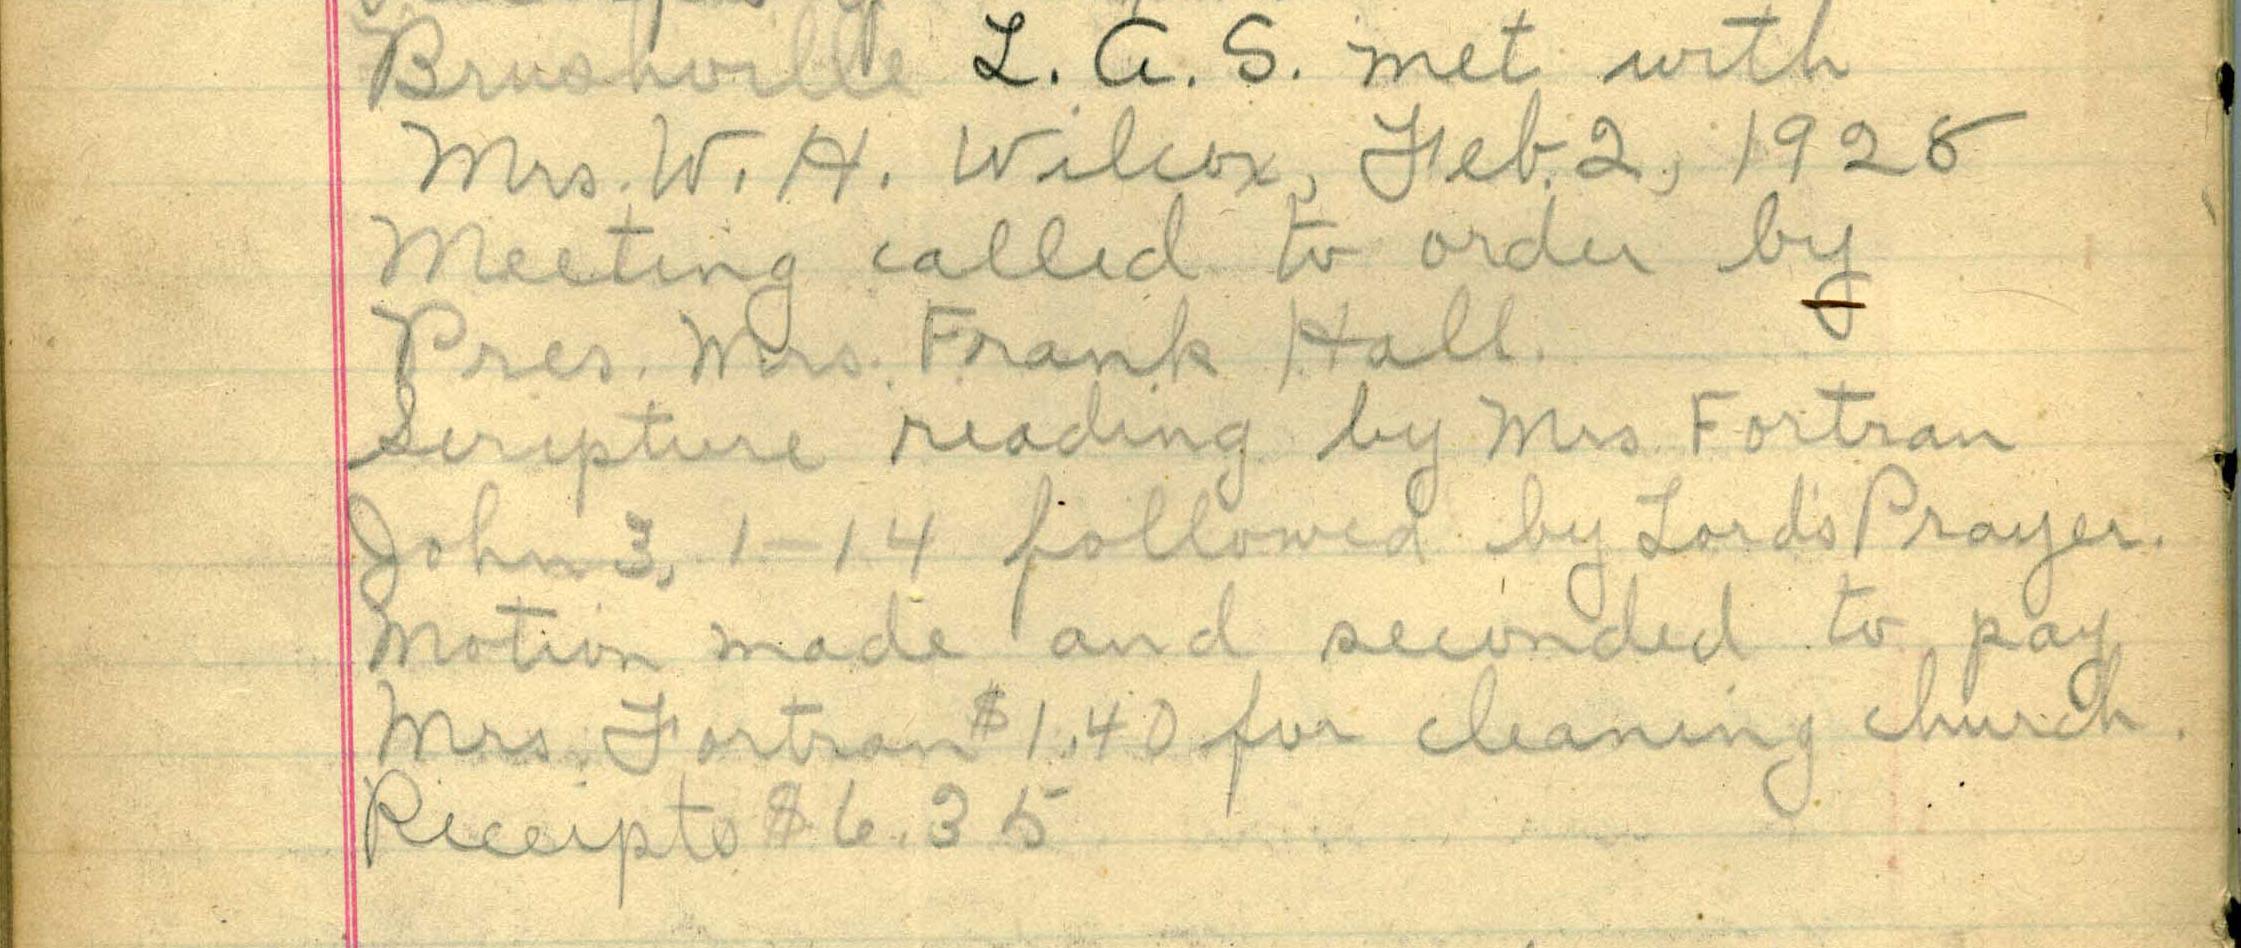 Brushville L. A. S. met with
Mrs. W. H. Wilcox, Feb. 2, 1928
Meeting called to order by
Pres. Mrs. Frank Hall.
Scripture reading by Mrs Fortran
John 3, 1-14 followed by Lord's Prayer.
Motion made and seconded to pay
Mrs. Fortran $1.40 for cleaning church.
Receipts $6.35